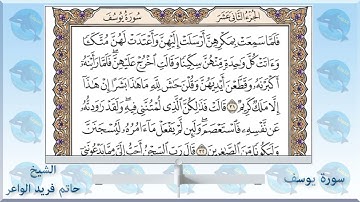 الجزء الثاني عشر
سورة يوسف
فَلَمَّا سَمِعَتْ بِمَكْرِهِنَّ أَرْسَلَتْ إِلَيْهِنَّ وَأَعْتَدَتْ لَهُنَّ مُتَّكَـًٔا
وَءَاتَتْ كُلَّ وَٰحِدَةٍ مِّنْهُنَّ سِكِّينًا وَقَالَتِ ٱخْرُجْ عَلَيْهِنَّ ۖ فَلَمَّا رَأَيْنَهُۥٓ
أَكْبَرْنَهُۥ وَقَطَّعْنَ أَيْدِيَهُنَّ وَقُلْنَ حَـٰشَ لِلَّهِ مَا هَـٰذَا بَشَرًا إِنْ هَـٰذَآ
إِلَّا مَلَكٌ كَرِيمٌ ٣١ قَالَتْ فَذَٰلِكُنَّ ٱلَّذِى لُمْتُنَّنِى فِيهِ ۖ وَلَقَدْ رَٰوَدتُّهُۥ
عَن نَّفْسِهِۦ فَٱسْتَعْصَمَ ۖ وَلَئِن لَّمْ يَفْعَلْ مَآ ءَامُرُهُۥ لَيُسْجَنَنَّ
وَلَيَكُونًا مِّنَ ٱلصَّـٰغِرِينَ ٣٢ قَالَ رَبِّ ٱلسِّجْنُ أَحَبُّ إِلَىَّ مِمَّا يَدْعُونَنِىٓ
سورة يوسف
الشيخ
حاتم فريد الواعر